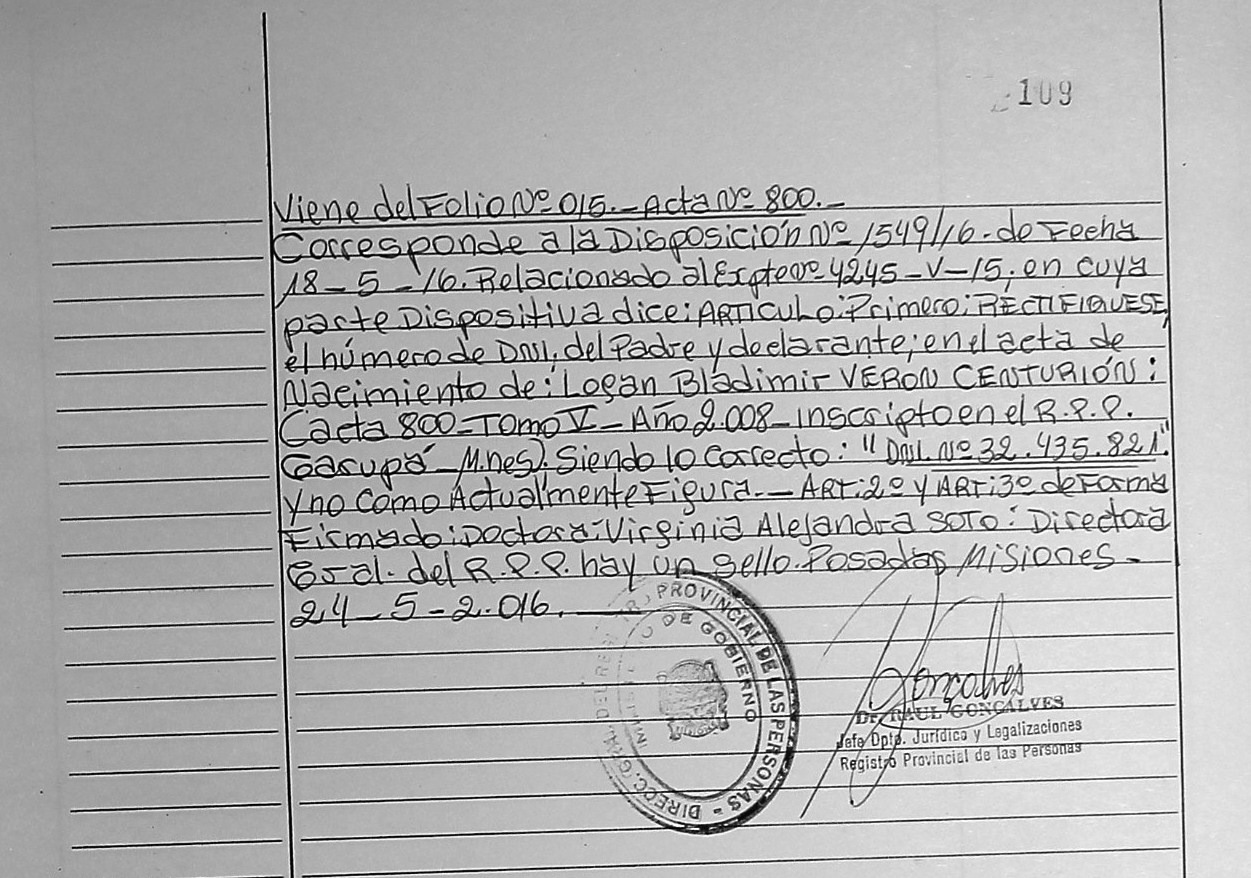 109
Viene del Folio Nº 015.- Acta Nº 800.-
Corresponde a la Disposición Nº 1549/16. de Fecha
18-5-16. Relacionado al Expte Nº 4245-V-15; en cuya
parte Dispositiva dice: ARTÍCULO: Primero: RECTIFIQUESE,
el número de DNI, del Padre y declarante; en el acta de
Nacimiento de: Logan Bladimir VERON CENTURIÓN:
(acta 800-Tomo V-Año 2.008-inscripto en el R.P.P.
Garupá-M.nes). Siendo lo Correcto: "DNI. Nº 32.435.821"
y no Como Actualmente Figura.-ART: 2º y ART: 3º de Forma
Firmado: Doctora: Virginia Alejandra SOTO: Directora
Gral. del R.P.P. hay un sello. Posadas Misiones-
24-5-2.016.
DIRECC. GRAL. DEL REGISTRO PROVINCIAL DE LAS PERSONAS -
MINISTERIO DE GOBIERNO
Goncalves
Dr. RAUL GONCALVES
Jefe Dpto. Jurídico y Legalizaciones
Registro Provincial de las Personas